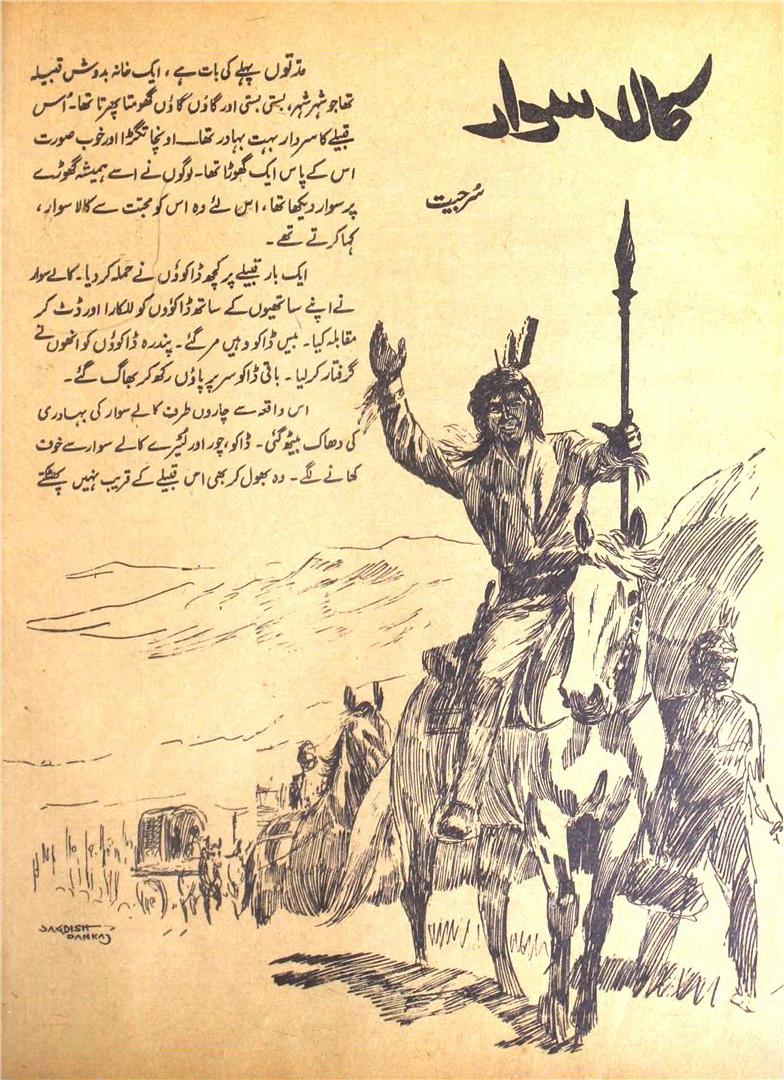 کالا سوار
سُرجیت
مدتوں پہلے کی بات ہے، ایک خانہ بدوش قبیلہ
تھا جو شہر شہر، بستی بستی اور گاؤں گاؤں گھومتا پھرتا تھا۔ اُس
قبیلے کا سردار بہت بہادر تھا۔ اونچا تگڑا اور خوب صورت
اس کے پاس ایک گھوڑا تھا۔ لوگوں نے اسے ہمیشہ گھوڑے
پر سوار دیکھا تھا، اس لئے وہ اس کو محبت سے کالا سوار،
کہا کرتے تھے۔
ایک بار قبیلے پر کچھ ڈاکوؤں نے حملہ کر دیا۔ کالے سوار
نے اپنے ساتھیوں کے ساتھ ڈاکوؤں کو للکارا اور ڈٹ کر
مقابلہ کیا۔ بیس ڈاکو وہیں مر گئے۔ پندرہ ڈاکوؤں کو انھوں نے
گرفتار کر لیا۔ باقی ڈاکو سر پر پاؤں رکھ کر بھاگ گئے۔
اس واقعہ سے چاروں طرف کالے سوار کی بہادری
کی دھاک بیٹھ گئی۔ ڈاکو، چور اور لٹیرے کالے سوار سے خوف
کھانے لگے۔ وہ بھول کر بھی اس قبیلے کے قریب نہیں پھٹکتے
JAGDISH
PANKAJ